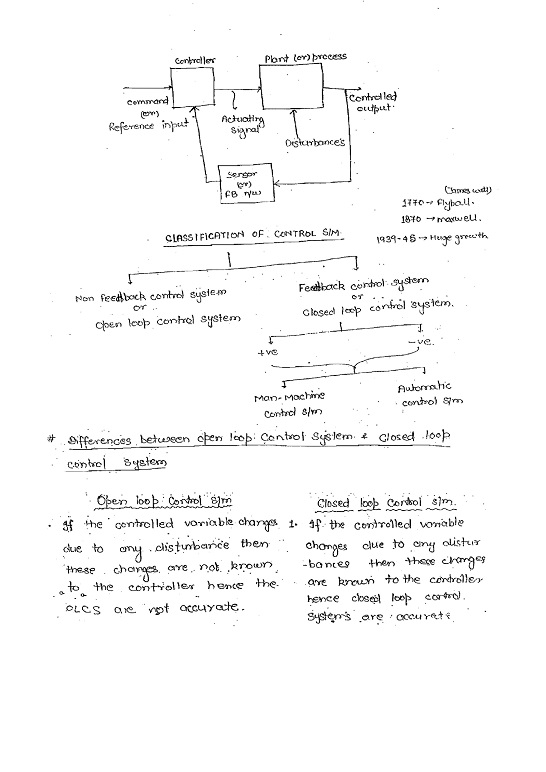 Controller
Plant (or) process
command
(or)
Reference input
Actuating
Signal
Controlled
output.
Disturbance's
Sensor
(or)
FB n/w
(James watt)
1770 → Flyball.
1870 → maxwell.
1939-45 → Huge growth
CLASSIFICATION OF CONTROL S/M
Non feedback control system
or
Open loop control system
Feedback control system
or
Closed loop control system.
+ve
-ve.
Man-Machine
control s/m
Automatic
control s/m
# Differences between open loop control System & Closed loop
control System
Open loop Control s/m
If the controlled variable changes
due to any disturbance then
these changes are not known
to the controller hence the
OLCS are not accurate.
Closed loop Control s/m.
1. If the controlled variable
changes due to any distur
-bances then these changes
are known to the controller
hence closed loop control
systems are accurate